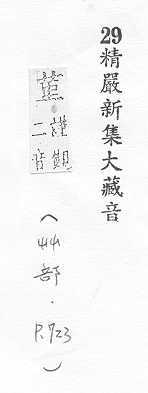 29精嚴新集大藏音
二音
(艸部.P.723)